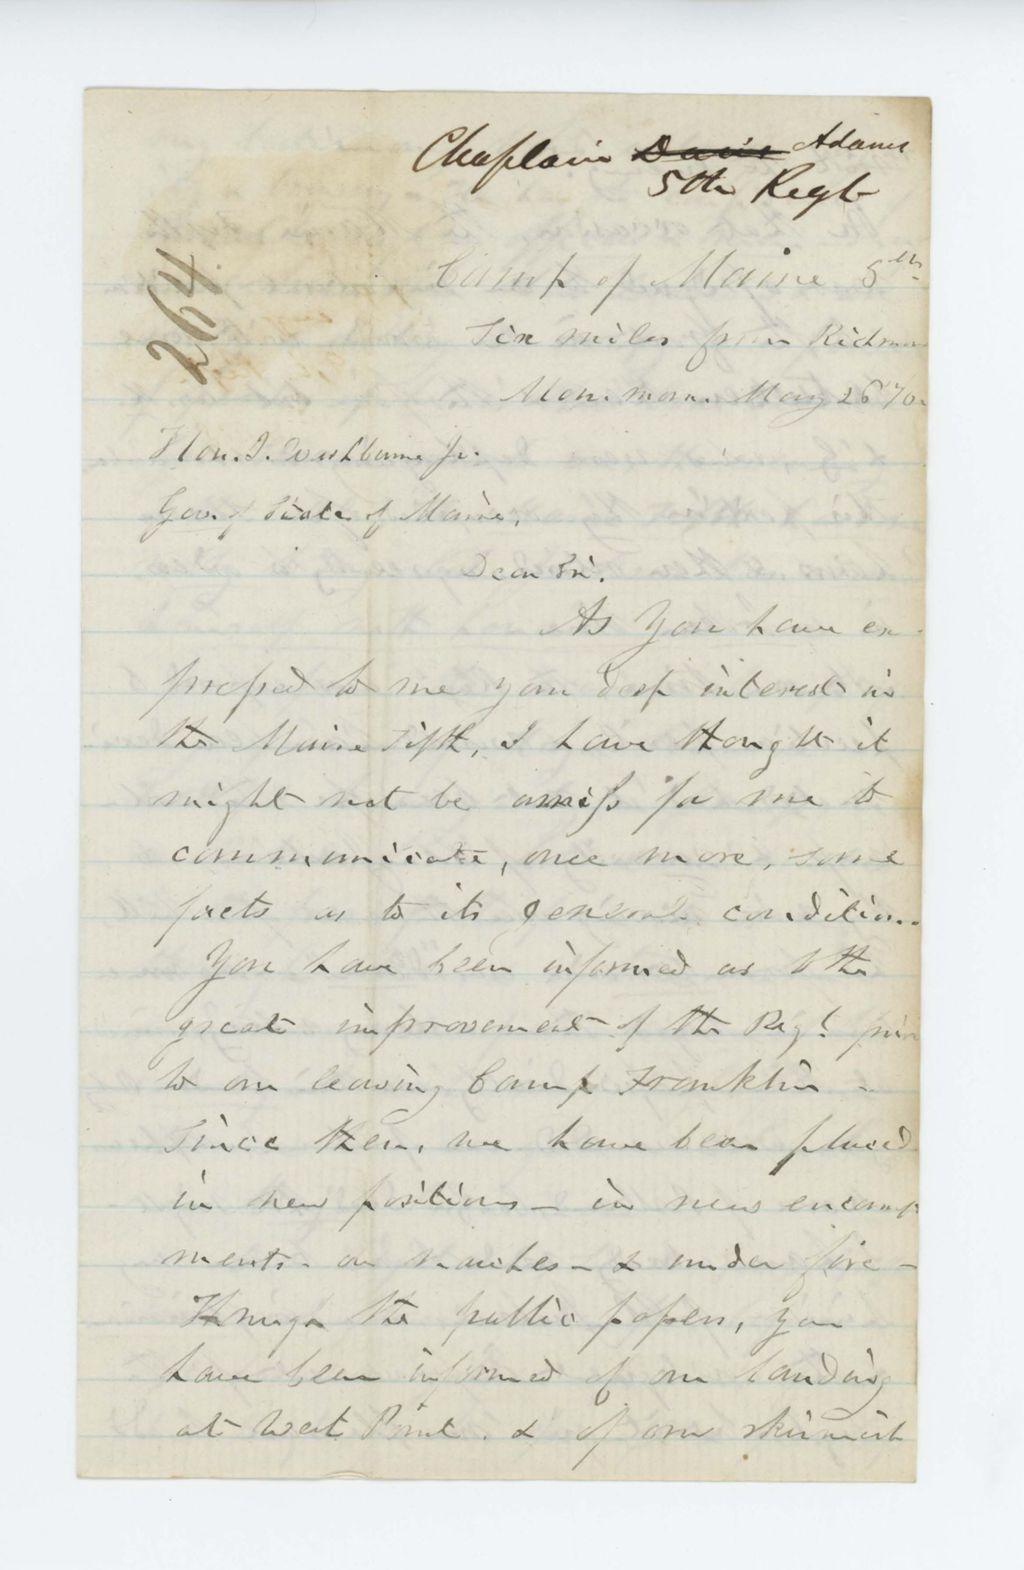 Chaplain Davis Adams
5th Regt
264
Camp of Maine 5th
Six miles from Richmon
Mon. morn. May 26 /6
Hon. I. Washburne Jr.
Gov. of State of Maine,
Dear Sir.
As you have ex-
pressed to me your deep interest in
the Maine Fifth, I have thought it
might not be amiss for me to
communicate, once more, some
facts as to its general condition.
You have been informed as to the
great improvement of the Regt. prior
to our leaving Camp Franklin -
Since then, we have been placed
in new positions - in new encamp
ments - on marches - & under fire -
Through the public papers, you
have been informed of our landing
at West Point. & of our skirmish